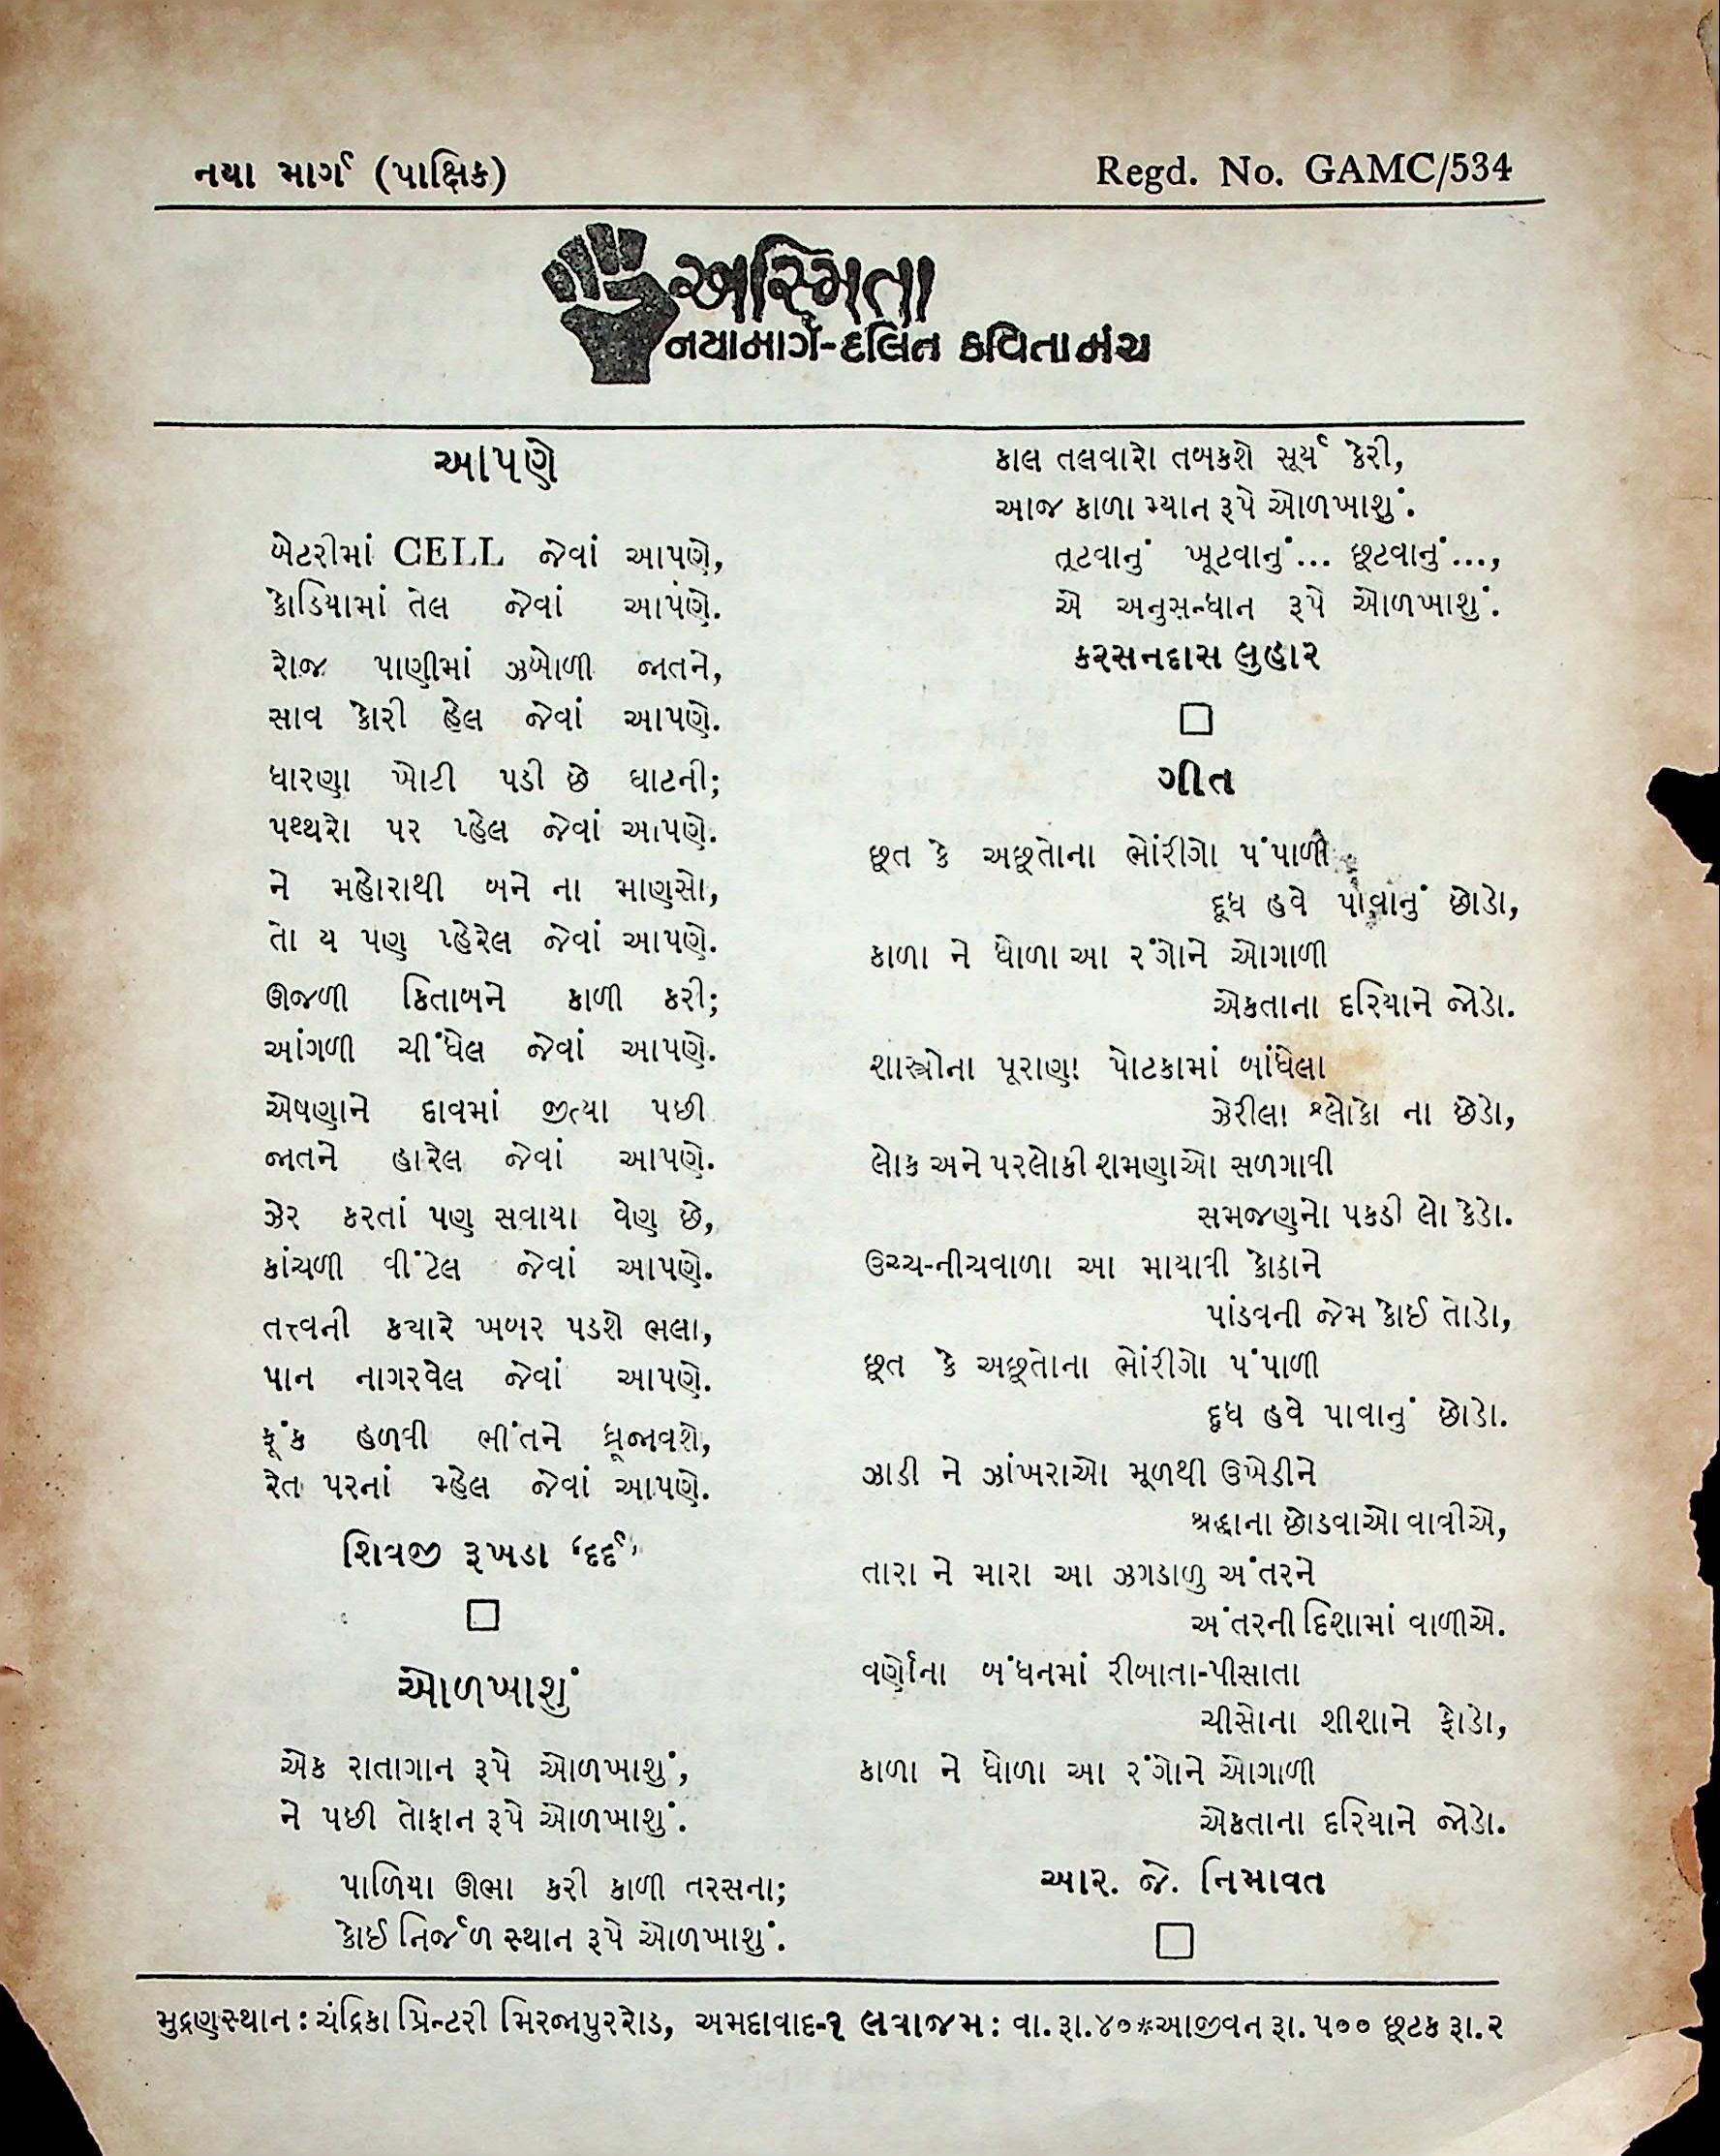 નયા માર્ગ (પાક્ષિક)
Regd. No. GAMC/534
અસ્મિતા
નયામાર્ગ-દલિત કવિતામંચ
આપણે
બેટરીમાં CELL જેવાં આપણે,
કોડિયામાં તેલ જેવાં આપણે.
રોજ પાણીમાં ઝબોળી જાતને,
સાવ કોરી હેલ જેવાં આપણે.
ધારણા ખોટી પડી છે ઘાટની;
પથ્થરો પર પ્હેલ જેવાં આપણે.
ને મહોરાથી બને ના માણસો,
તો ય પણ પ્હેરેલ જેવાં આપણે.
ઊજળી કિતાબને કાળી કરી;
આંગળી ચીંધેલ જેવાં આપણે.
એષણાને દાવમાં જીત્યા પછી
જાતને હારેલ જેવાં આપણે.
ઝેર કરતાં પણ સવાયા વેણ છે,
કાંચળી વીંટેલ જેવાં આપણે.
તત્ત્વની કયારે ખબર પડશે ભલા,
પાન નાગરવેલ જેવાં આપણે.
ફૂંક હળવી ભીંતને ધ્રૂજાવશે,
રેત પરનાં મ્હેલ જેવાં આપણે.
શિવજી રૂખડા ‘દર્દ’
ઓળખાશું
એક રાતાગાન રૂપે ઓળખાશું,
ને પછી તોફાન રૂપે ઓળખાશું.
પાળિયા ઊભા કરી કાળી તરસના;
કોઈ નિર્જળ સ્થાન રૂપે ઓળખાશું.
કાલ તલવારો તબકશે સૂર્ય કેરી,
આજ કાળા મ્યાન રૂપે ઓળખાશું.
તૂટવાનું ખૂટવાનું... છૂટવાનું...,
એ અનુસન્ધાન રૂપે ઓળખાશું.
કરસનદાસ લુહાર
ગીત
છૂત કે અછૂતોના ભોંરીગો પંપાળી
દૂધ હવે પાવાનું છોડો,
કાળા ને ધોળા આ રંગોને ઓગાળી
એકતાના દરિયાને જોડો.
શાસ્ત્રોના પૂરાણા પોટકામાં બાંધેલા
ઝેરીલા શ્લોકો ના છેડો,
લોક અને પરલોકી શમણાઓ સળગાવી
સમજણનો પકડી લો કેડો.
ઉચ્ચ-નીચવાળા આ માયાવી કોઠાને
પાંડવની જેમ કોઈ તોડો,
છૂત કે અછૂતોના ભોંરીગો પંપાળી
દૂધ હવે પાવાનું છોડો.
ઝાડી ને ઝાંખરાઓ મૂળથી ઉખેડીને
શ્રદ્ધાના છોડવાઓ વાવીએ,
તારા ને મારા આ ઝગડાળુ અંતરને
અંતરની દિશામાં વાળીએ.
વર્ણોના બંધનમાં રીબાતા-પીસાતા
ચીસોના શીશાને ફોડો,
કાળા ને ધોળા આ રંગોને ઓગાળી
એકતાના દરિયાને જોડો.
આર. જે. નિમાવત
મુદ્રણસ્થાન : ચંદ્રિકા પ્રિન્ટરી મિરજાપુરરોડ, અમદાવાદ-૧ લવાજમ : વા. રૂા.૪૦*આજીવન રૂા. ૫૦૦ છૂટક રૂા. ૨